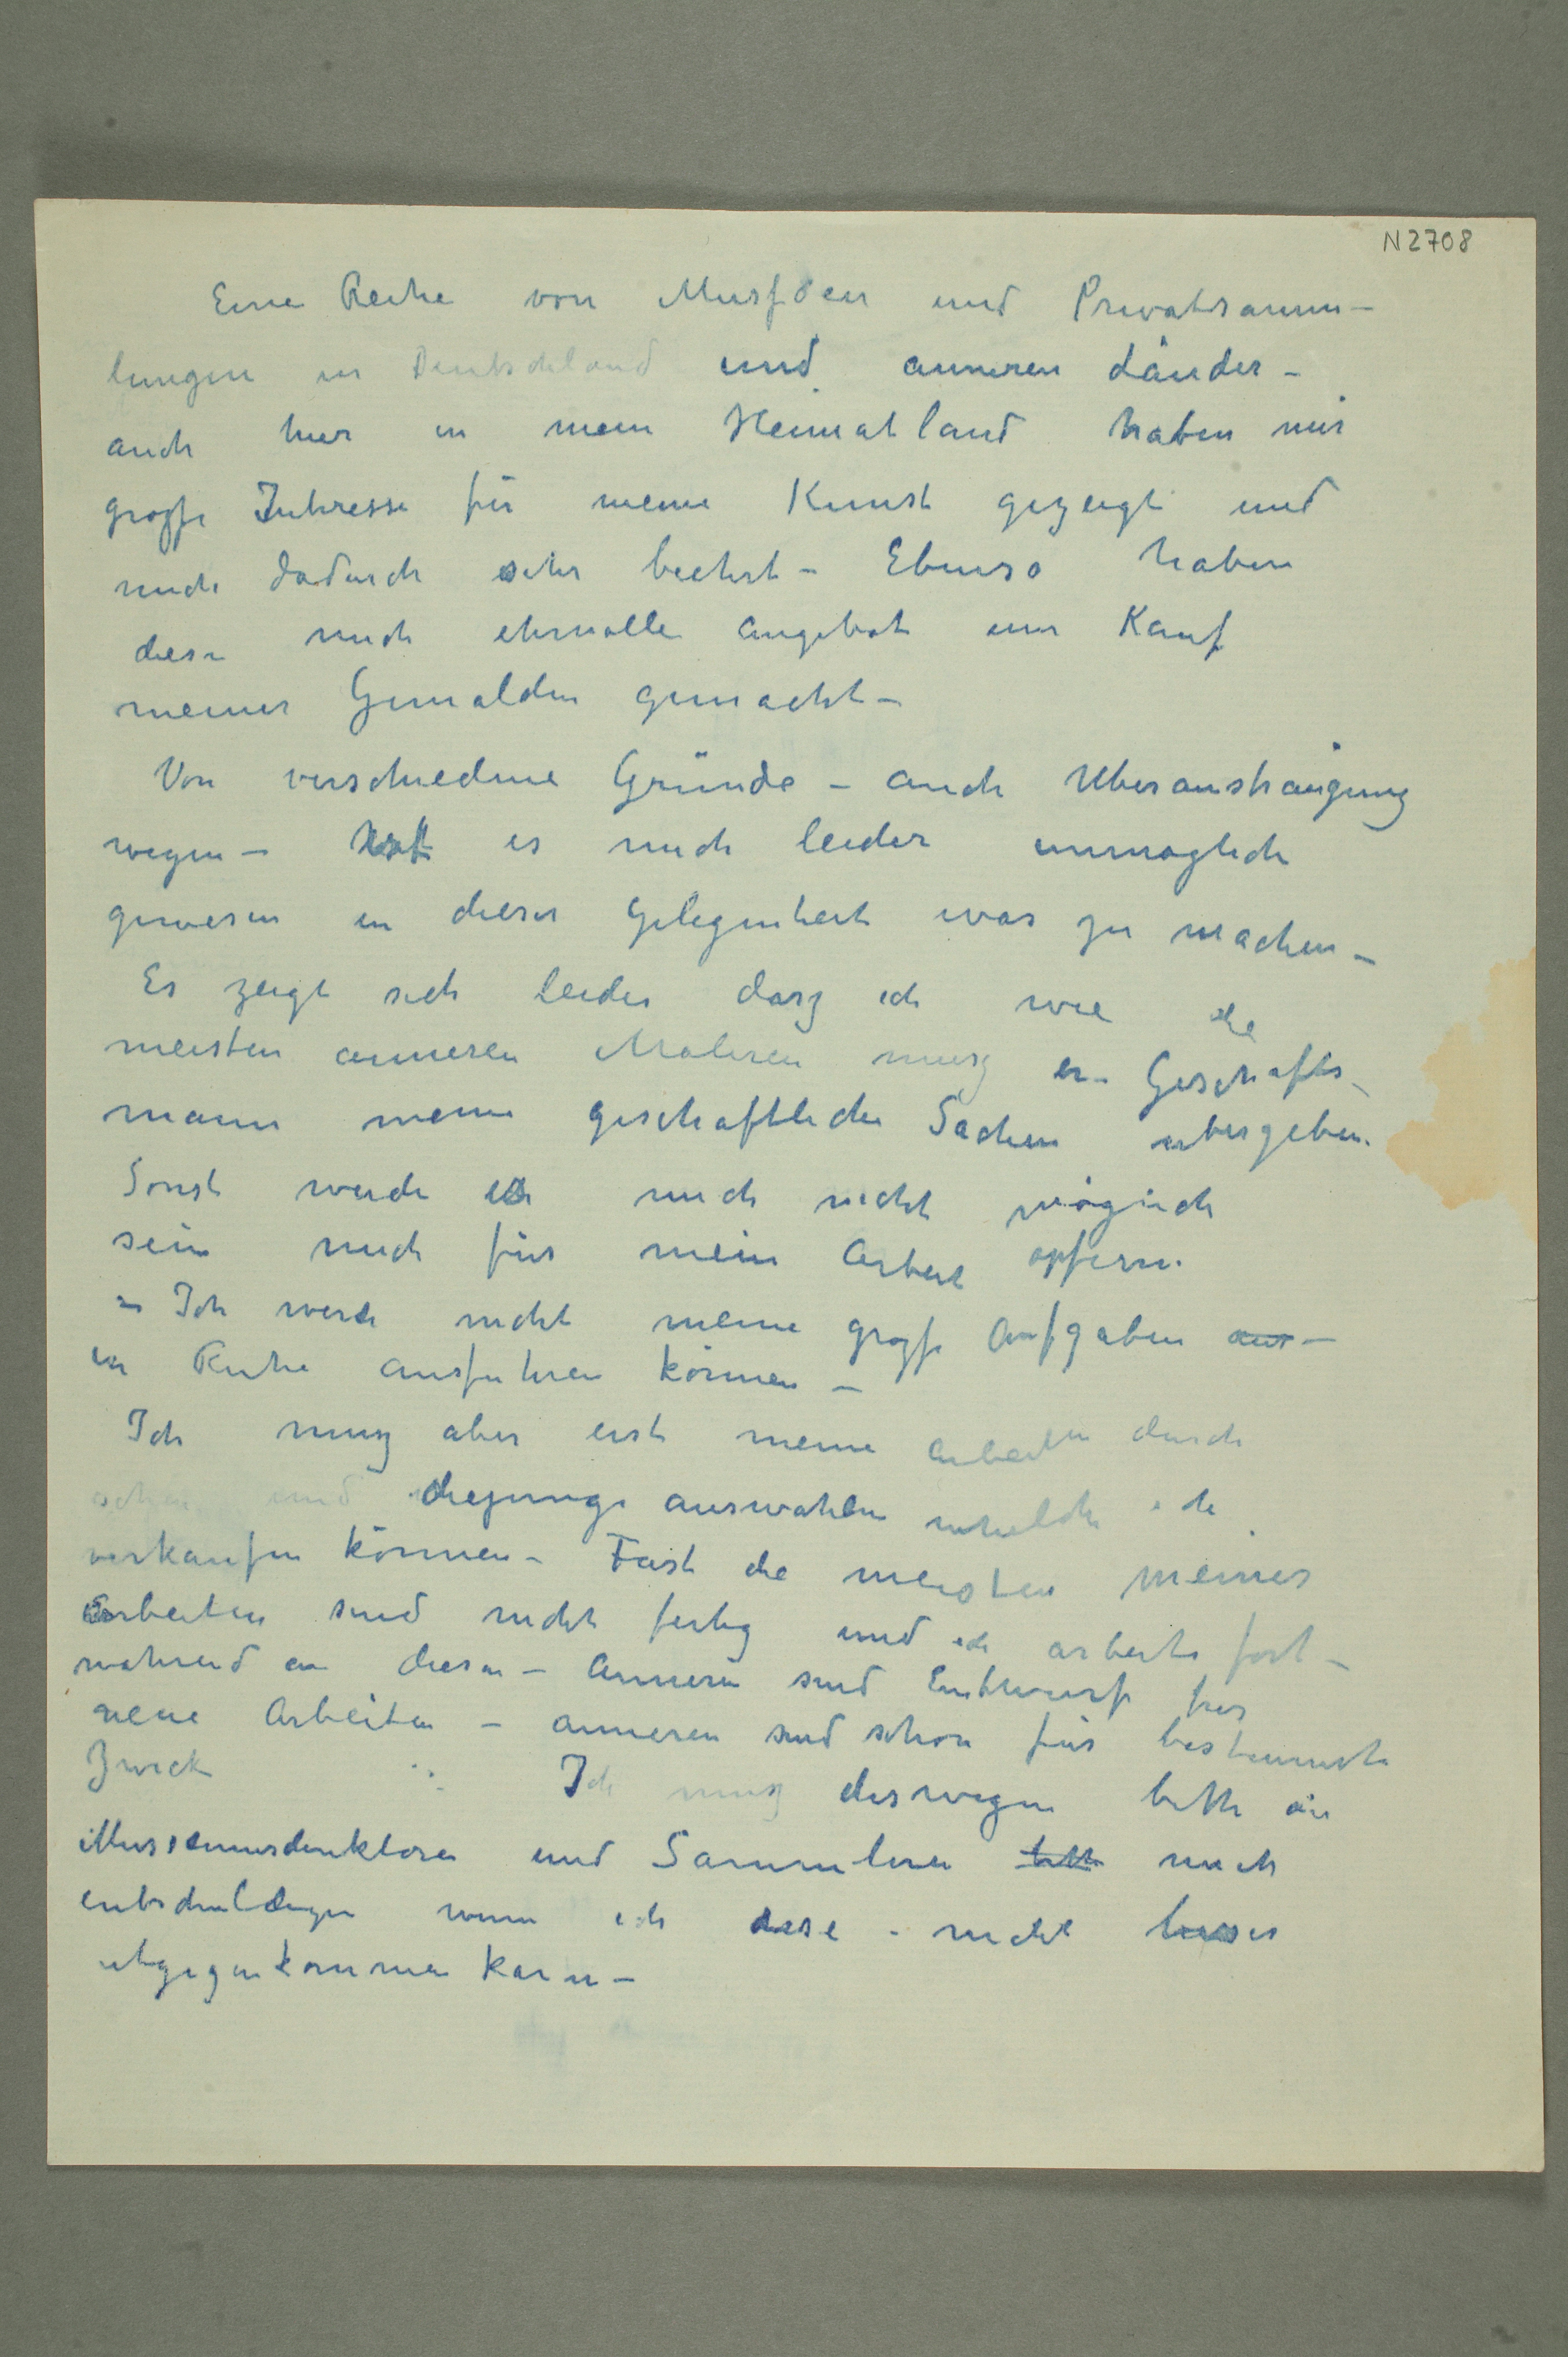 N 2708
Eine Reihe von Museen und Privatsamm–
lungen in Deutschland und anneren Länder –
auch hier in mein Heimatland haben mir
große Interesse für meine Kunst gezeigt und
mich dadurch sehr beehrt – Ebenso haben
diese mich ehrnolle Angebot um Kauf
meiner Gemalden gemacht –
Von verschiedene Gründe – auch Uberanstrangung
wegen – hat es mich leider unmoglich
gewesen in dieser Gelegenheit was zu machen –
Es zeigt sich leider dasz ich wie die
meisten anneren Maleren musz en Geschafts
mann meine geschaftliche Sachen ubergeben.
Sonst werde es mich nicht möglich
sein mich für mein Arbeit opfern.
– Ich werde nicht meine große Aufgaben aus –
in Ruhe ausfuhren können –
Ich musz aber erst meine Arbeiten durch
sehen und diejenige auswahlen welche ich
verkaufen können – Fast die meisten meiner
Arbeiten sind nicht fertig und ich arbeite fort –
wahrend an diesen – Anneren sind Entwurf für
neue Arbeiten – anneren sind schon für bestimmte
Zweck Ich musz deswegen bitte die
Musseumsdirektoren und Sammleren bitte mich
entschuldigen wenn ich diese – nicht besser
etgegenkommen kann –